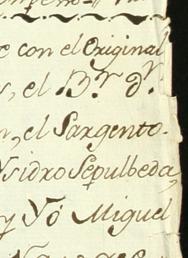 e con el Original
s, el B.r d.n
n, el Sargento.
Ysidro Sepulbeda,
y Yó Miguel